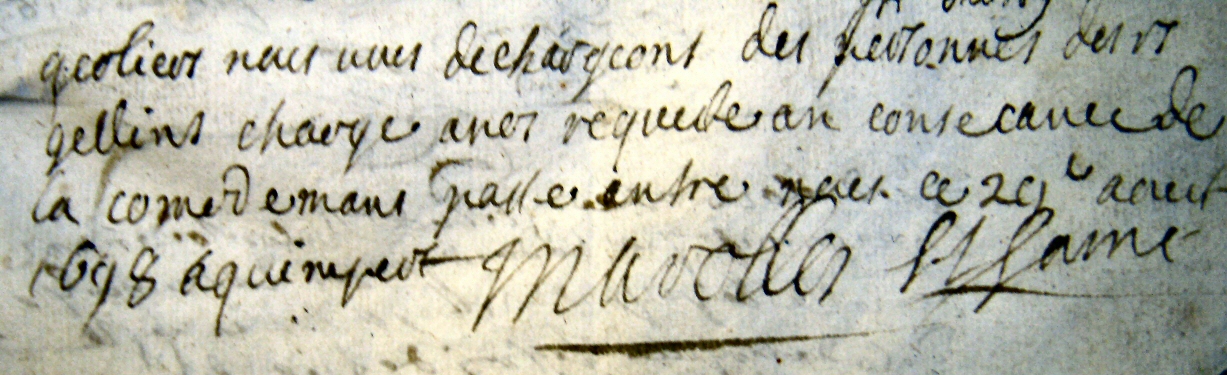 geolier nous nous dechargeons des personnes desrs
gellins charge a nos requeste an consecance de
la comodemans passe entre nous ce 29e aoust
1698 a quimper